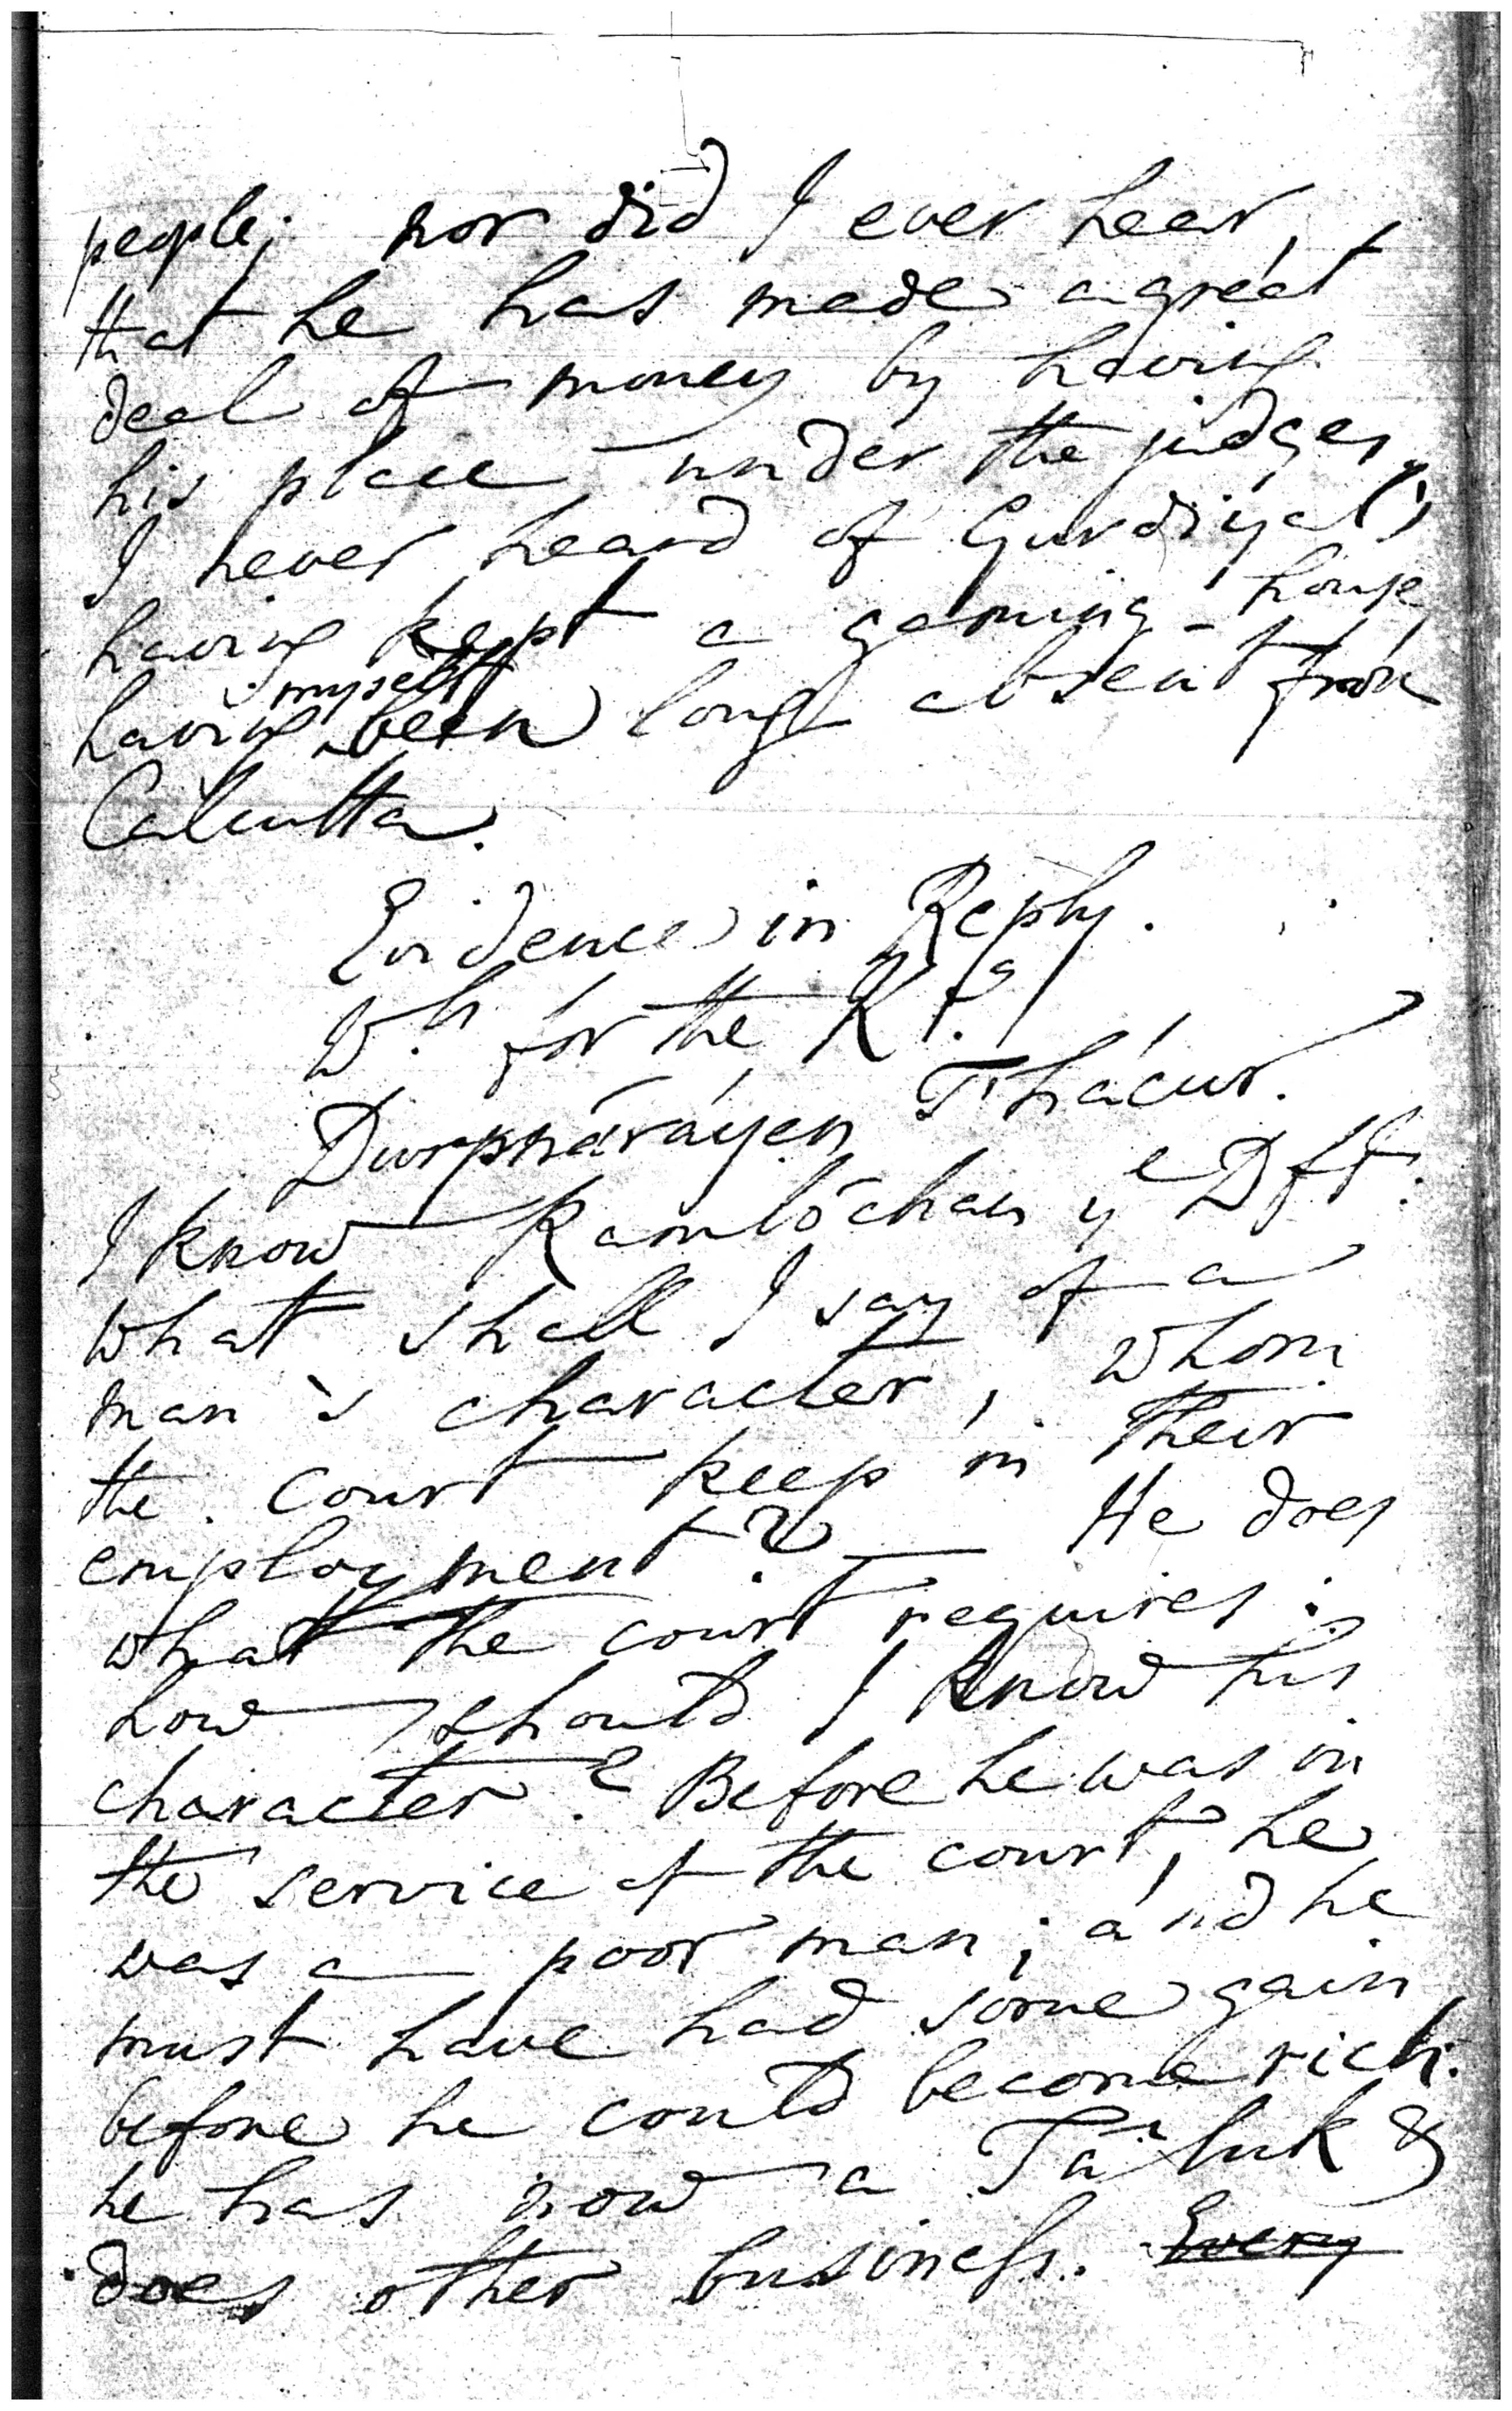 people; nor did I ever hear,
that he has made a great
deal of money by having
his place under the judges.
I never heard of Gurdiyal's
having kept a gaming-house
having myself been long absent from
Calcutta.
Evidence in Reply.
for the
Durpnáráyen T'hácur.
I know Ramlóchan yͤ Dft.
what shall I say of a
man's character, whom
the court keep in their
employment? — He does
what the court requires:
how should I know his
character? Before he was in
the service of the court, he
was a poor man; and he
must have had some gain
before he could become rich.
he has now a Taʿluk &
does other business. Every